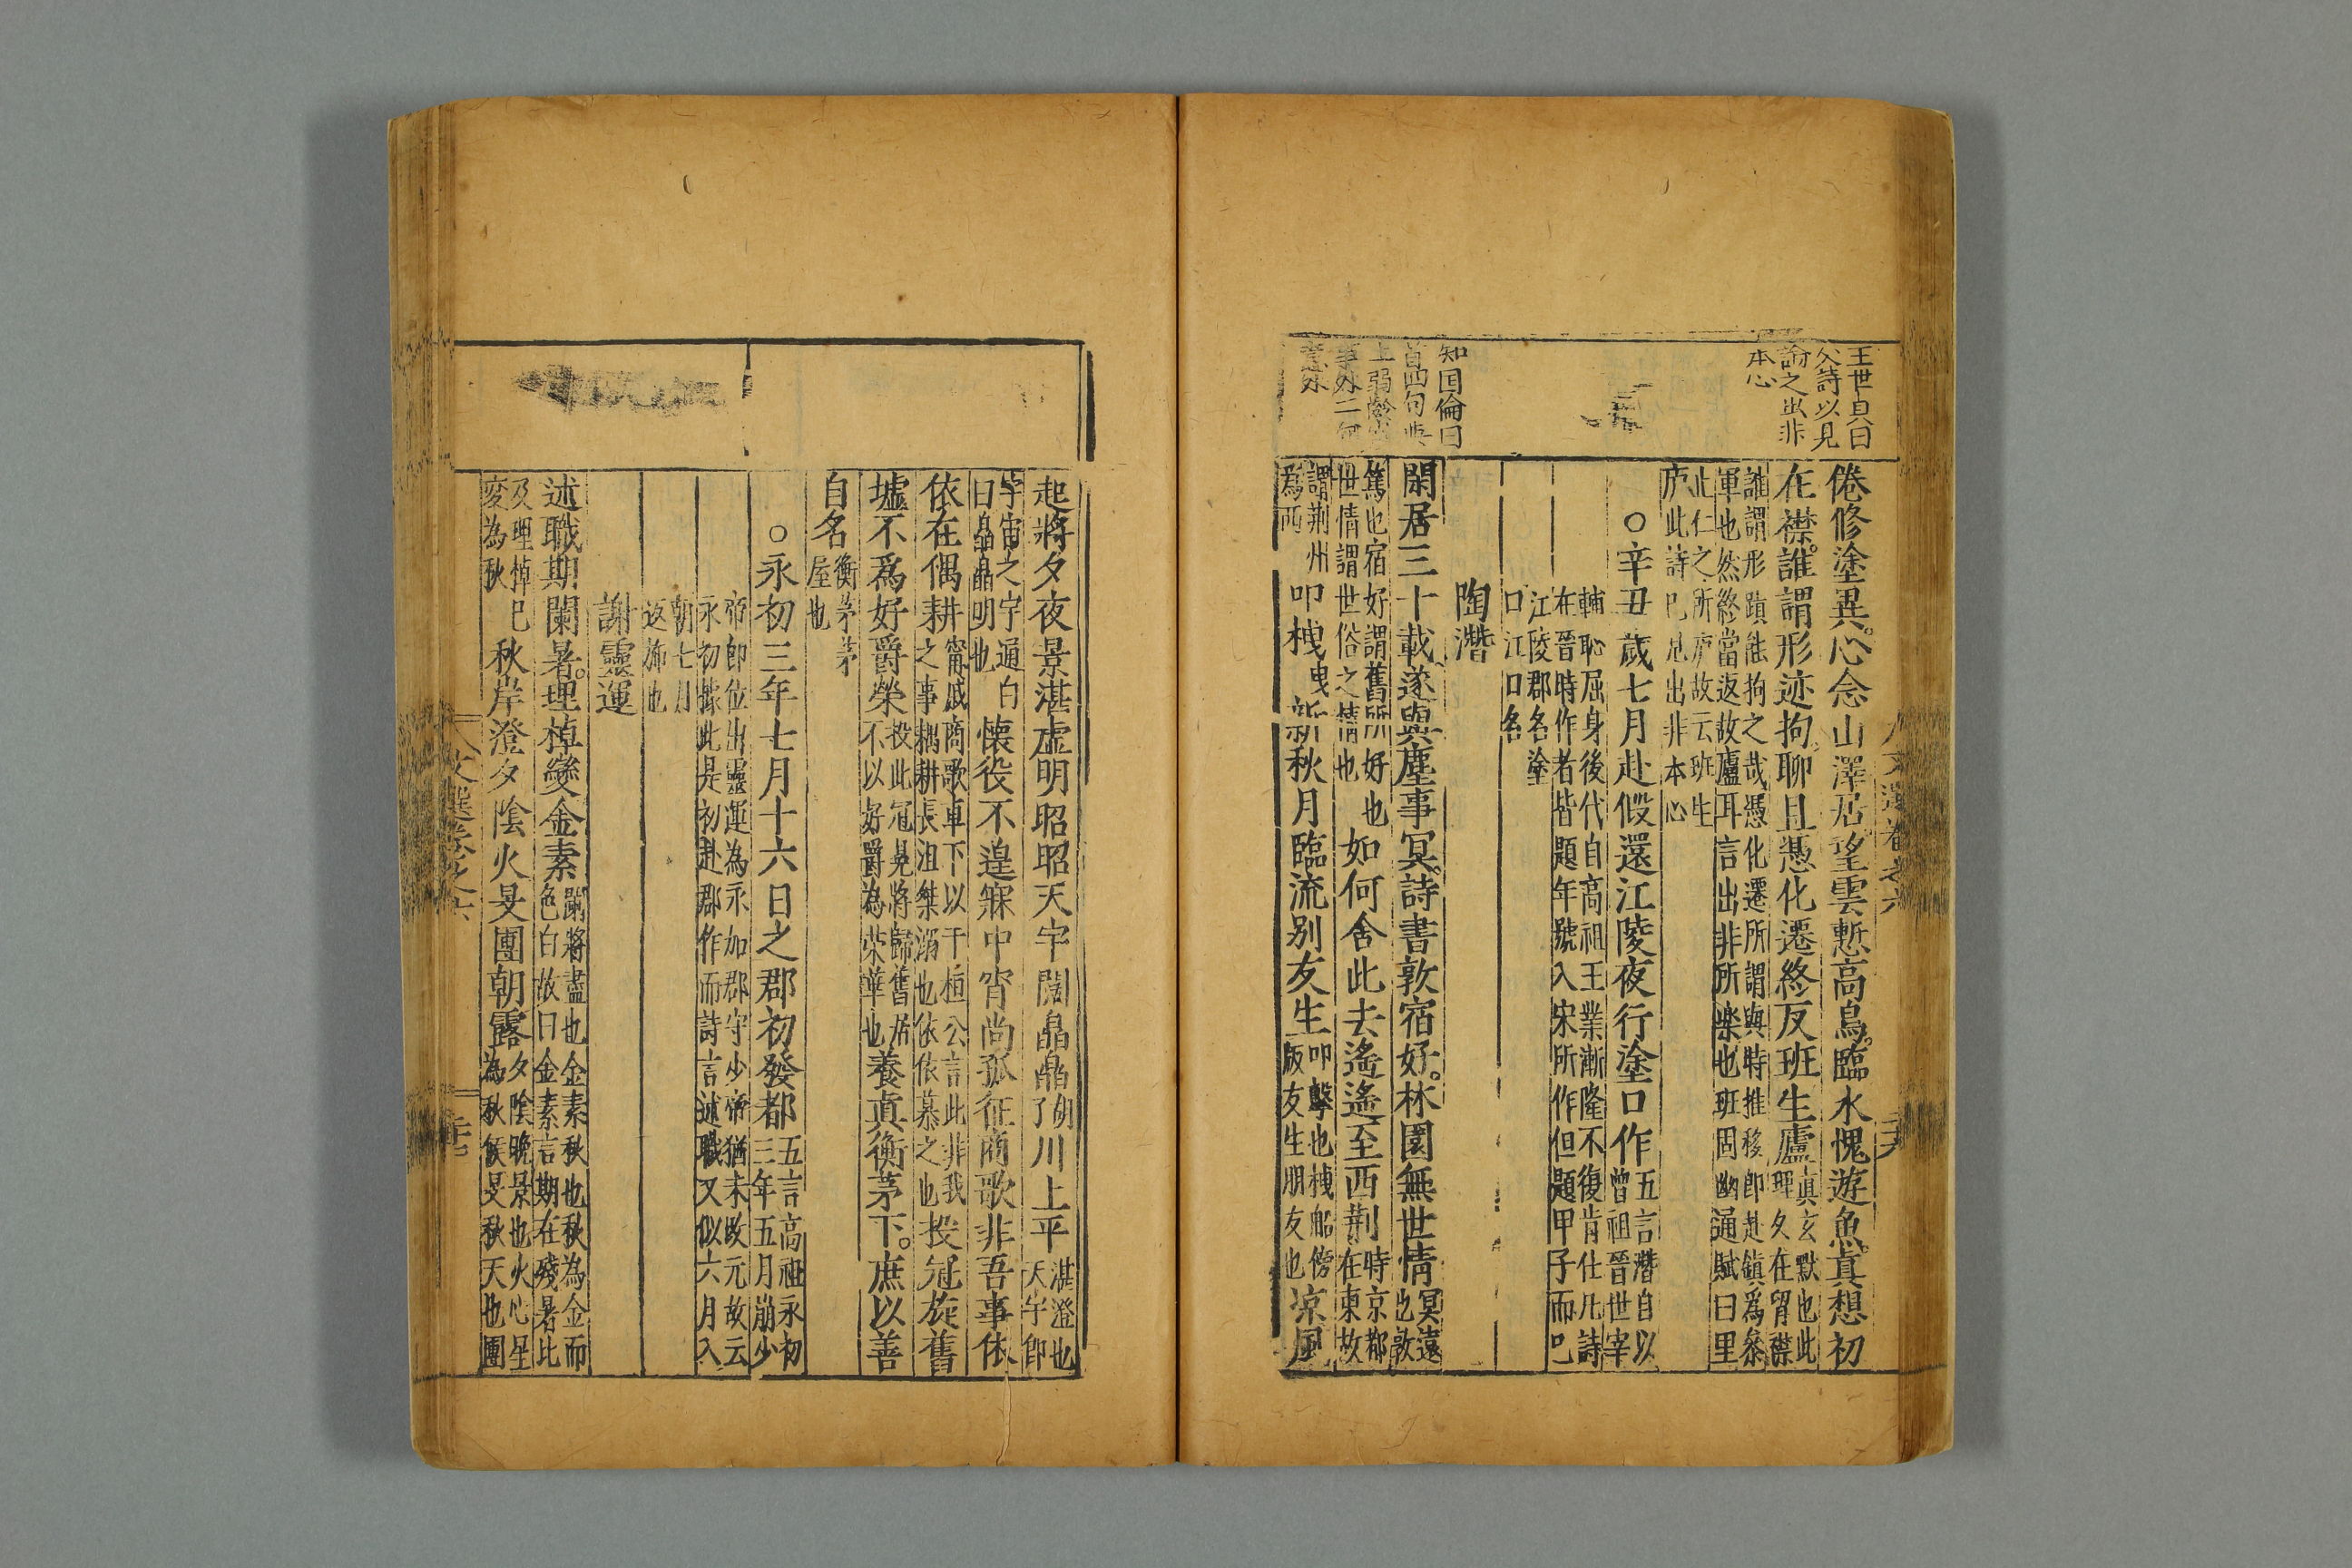 王世貞曰
久詩以見
諭之出非
本心
倦修塗異。心念山澤居。望雲慙高鳥。臨水愧遊魚。真想初
在襟。誰謂形迹拘。聊且憑化遷。終反班生廬
真玄默也此
理久在胷襟
誰謂形蹟能拘之哉憑化遷所謂與時推移即赴鎮爲叅
軍也然終當返故廬耳言出非所樂也班固幽通賦曰里
止仁之所庐故云班生
庐此詩已見出非本心
○辛丑歲七月赴假還江陵夜行塗口作
五言潛自以
曾祖晉世宰
輔恥屈身後代自高祖王業漸隆不復肯仕凡詩
在晉時作者皆題年號入宋所作但題甲子而已
江陵郡名塗
口江口名
陶潛
知
倫曰
首四句
上弱齡
事外二句
閑居三十載。遂與塵事冥。詩書敦宿好。林園無世情
冥遠
也敦
篤也宿好謂舊所好也
世情謂世俗之情也
如何舍此去。遙遙至西荆
時京都
在東故
謂荆州
爲西
叩栧
曳
新秋月臨流别友生
叩擊也栧船傍
版友生朋友也
凉風
文選卷之六
起將夕夜景湛虛明昭昭天宇闊皛皛
胡
了
川上平
湛澄也
天宇即
宇宙之宇通白
曰皛皛明也
懷役不遑寐中宵尚孤征商歌非吾事依
依在偶耕
甯戚商歌車下以干桓公言此非我
之事耦耕長沮桀溺也依依慕之也
投冠旋舊
墟不爲好爵榮
投此冠冕將歸舊居
不以好爵為荣華也
養真衡茅下。庶以善
自名
衡茅茅
屋也
○永初三年七月十六日之郡初發都
五言高祖永初
三年五月崩少
帝即位出靈運為永加郡守少帝猶未改元故云
永初據此是初赴郡作而詩言述職又似六月入
朝七月
返斾也
謝靈運
述職期闌暑。理棹變金素
闌將盡也金素秋也秋為金而
色白故曰金素言期在殘暑比
及理棹已
変為秋
秋岸澄夕陰火旻團朝露
夕陰晚景也火心星
為秋候旻秋天也團